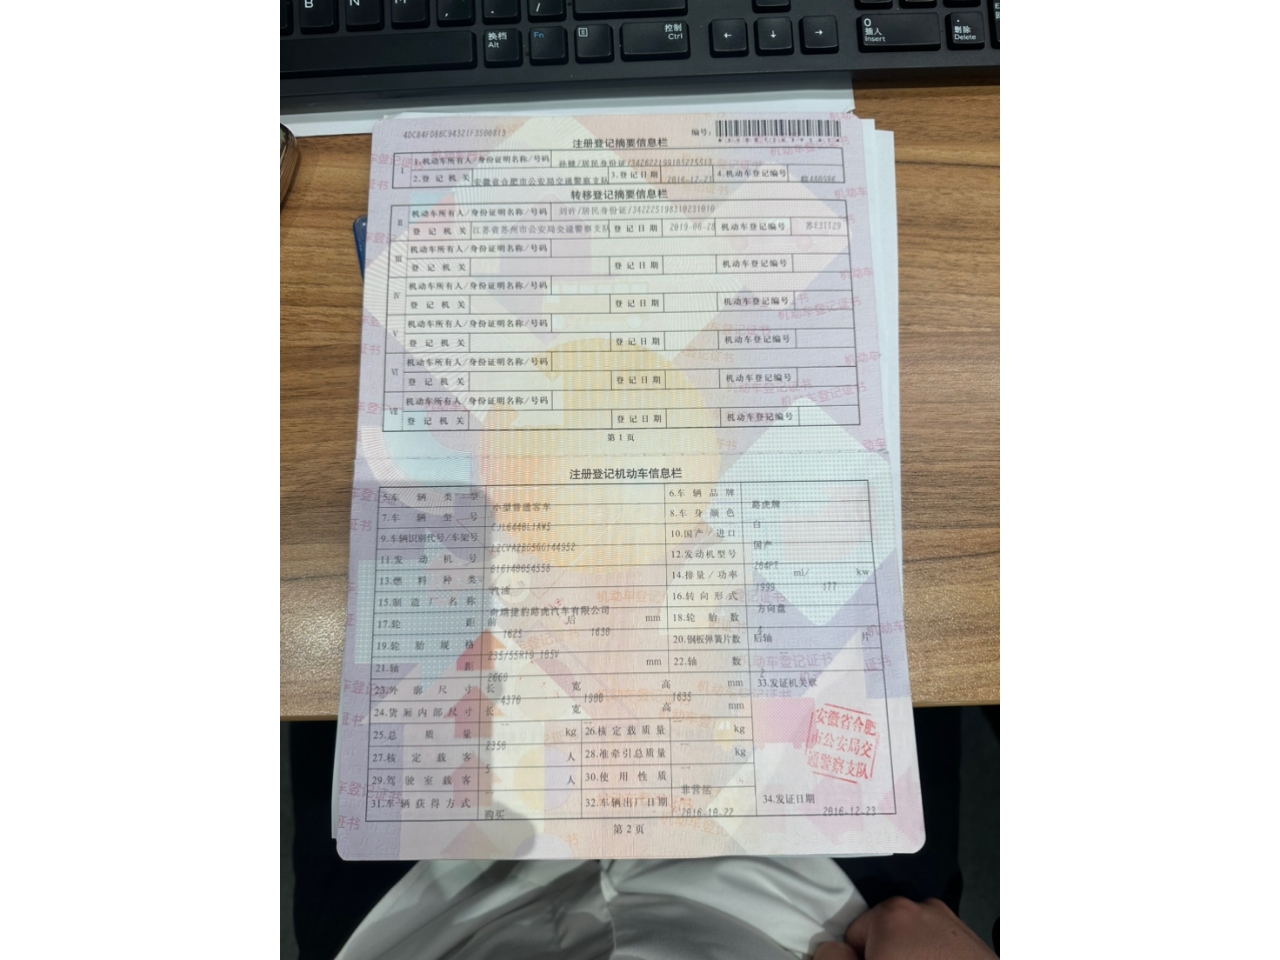 B N , . /
换档 Alt Fn 控制 Ctrl ← ↓ → 0 插入 Insert . 删除 Delete
编号:
注册登记摘要信息栏
I 1.机动车所有人/身份证明名称/号码
2.登记机关 安徽省合肥市公安局交通警察支队 3.登记日期 2016-12-23 4.机动车登记编号
转移登记摘要信息栏
II 机动车所有人/身份证明名称/号码 刘许/居民身份证/342225198310231010
登记机关 江苏省苏州市公安局交通警察支队 登记日期 2019-06-28 机动车登记编号 苏E3TT29
III 机动车所有人/身份证明名称/号码
登记机关 登记日期 机动车登记编号
IV 机动车所有人/身份证明名称/号码
登记机关 登记日期 机动车登记编号
V 机动车所有人/身份证明名称/号码
登记机关 登记日期 机动车登记编号
VI 机动车所有人/身份证明名称/号码
登记机关 登记日期 机动车登记编号
VII 机动车所有人/身份证明名称/号码
登记机关 登记日期 机动车登记编号
第1页
注册登记机动车信息栏
5.车辆类型 小型普通客车 6.车辆品牌 路虎牌
7.车辆型号 8.车身颜色 白
9.车辆识别代号/车架号 10.国产/进口 国产
11.发动机号 12.发动机型号 204PT
13.燃料种类 汽油 14.排量/功率 1999 ml/ 177 kw
15.制造厂名称 奇瑞捷豹路虎汽车有限公司 16.转向形式 方向盘
17.轮距 前 1625 后 1630 mm 18.轮胎数 4
19.轮胎规格 235/55R19 105V 20.钢板弹簧片数 后轴 片
21.轴距 2660 mm 22.轴数 2
23.外廓尺寸 长 4370 宽 1900 高 1635 mm 33.发证机关章
24.货厢内部尺寸 长 -- 宽 -- 高 -- mm
安徽省合肥
市公安局交
通警察支队
25.总质量 2350 kg 26.核定载质量 -- kg
27.核定载客 5 人 28.准牵引总质量 -- kg
29.驾驶室载客 人 30.使用性质 非营运
31.车辆获得方式 购买 32.车辆出厂日期 2016-10-22 34.发证日期 2016-12-23
第2页